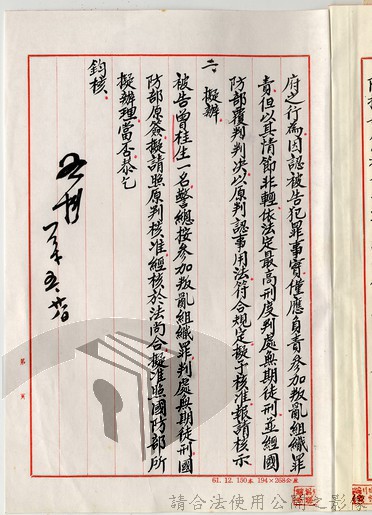 府之行為因認被告犯罪事實僅應負責參加叛亂組織罪
責但以其情節非輕依法定最高刑度判處無期徒刑並經國
防部覆判判決以原判認事用法符合規定擬予核准報請核示
二、擬辦
被告曾桂生一名警總按參加叛亂組織罪判處無期徒刑國
防部原簽擬請照原判核准經核於法尚合擬准照國防部所
擬辦理當否恭乞
鈞核
第 頁
61. 12. 150本 194×268公厘
請合法使用公開之影像